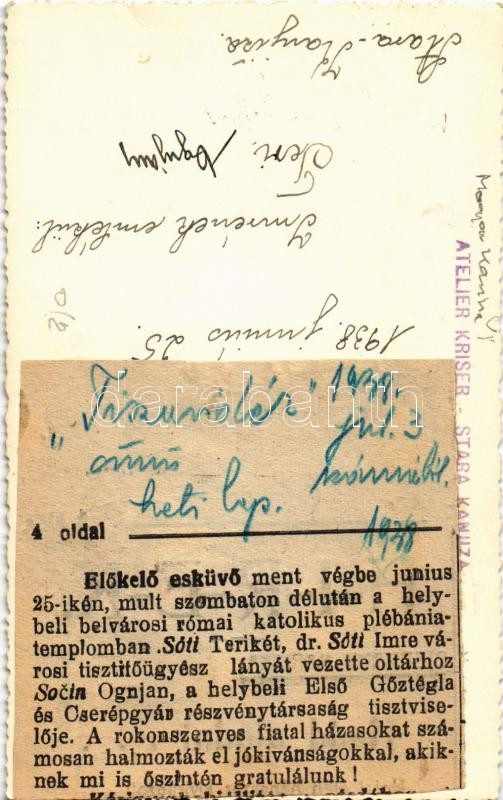 Stara-Kanyiža.
Teri. Ognjany
Imrének emlékül:
1938. junius 25.
ATELIER KRISER - STARA KANJIZA
darabanth
"Tiszavidék" 1938.
júl. 3
című számából.
heti lap.
1938
4 oldal
Előkelő esküvő ment végbe junius
25-ikén, mult szombaton délután a hely-
beli belvárosi római katolikus plébánia-
templomban. Sóti Terikét, dr. Sóti Imre vá-
rosi tisztitőügyész lányát vezette oltárhoz
Sočin Ognjan, a helybeli Első Gőztégla
és Cserépgyár részvénytársaság tisztvise-
lője. A rokonszenves fiatal házasokat szá-
mosan halmozták el jókivánságokkal, akik-
nek mi is őszintén gratulálunk !